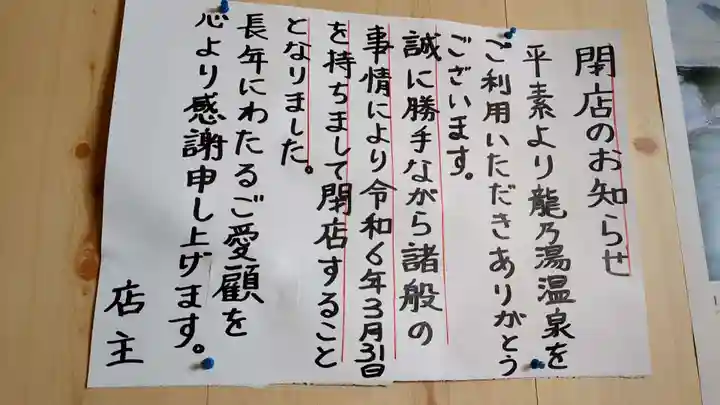 閉店のお知らせ
平素より龍乃湯温泉を
ご利用いただきありがとう
ございます。
誠に勝手ながら諸般の
事情により令和6年3月31日
を持ちまして閉店すること
となりました。
長年にわたるご愛顧を
心より感謝申し上げます。
店主